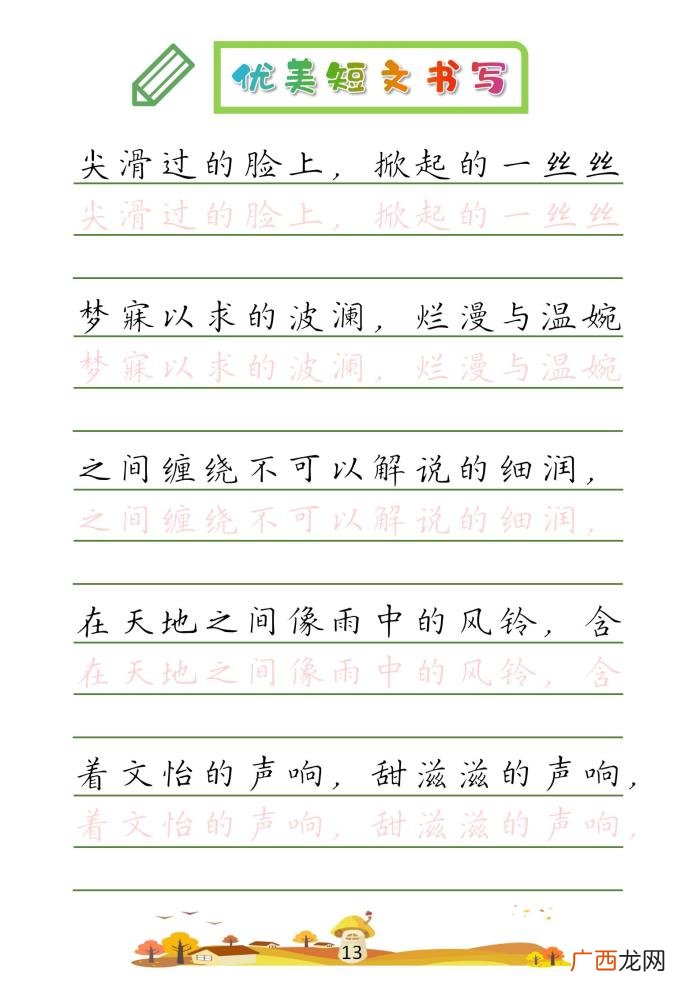 优美短文书写
尖滑过的脸上，掀起的一丝丝
尖滑过的脸上，掀起的一丝丝
梦寐以求的波澜，烂漫与温婉
梦寐以求的波澜，烂漫与温婉
之间缠绕不可以解说的细润，
之间缠绕不可以解说的细润，
在天地之间像雨中的风铃，含
在天地之间像雨中的风铃，含
着文怡的声响，甜滋滋的声响，
着文怡的声响，甜滋滋的声响，
13
广西龙网